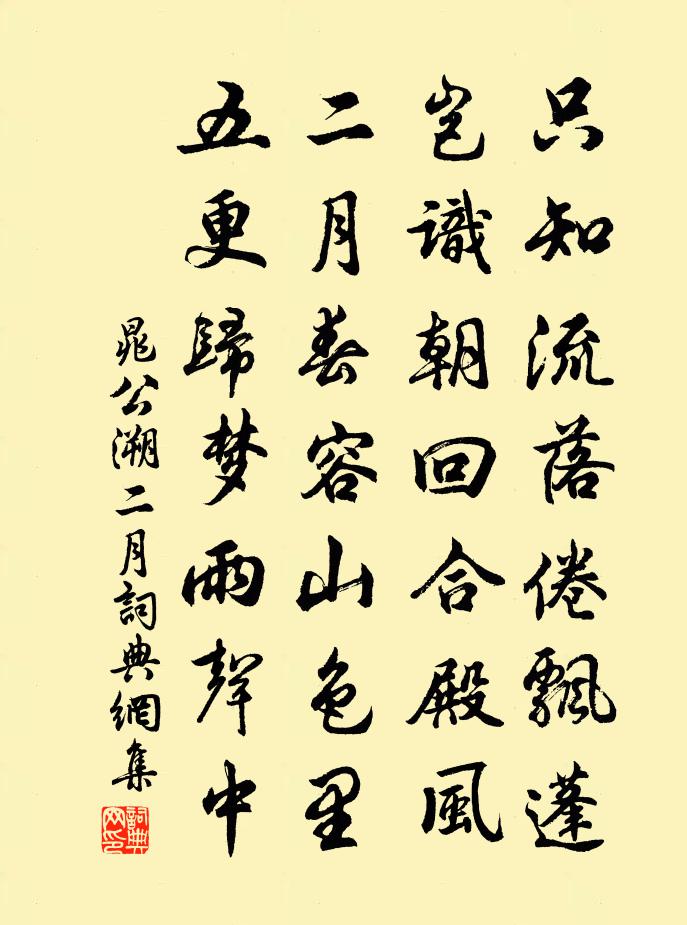 只知流落倦飄蓬
豈識朝回合殿風
二月春容山色里
五更歸梦雨聲中
晁公溯二月詞典網集
詞典网印